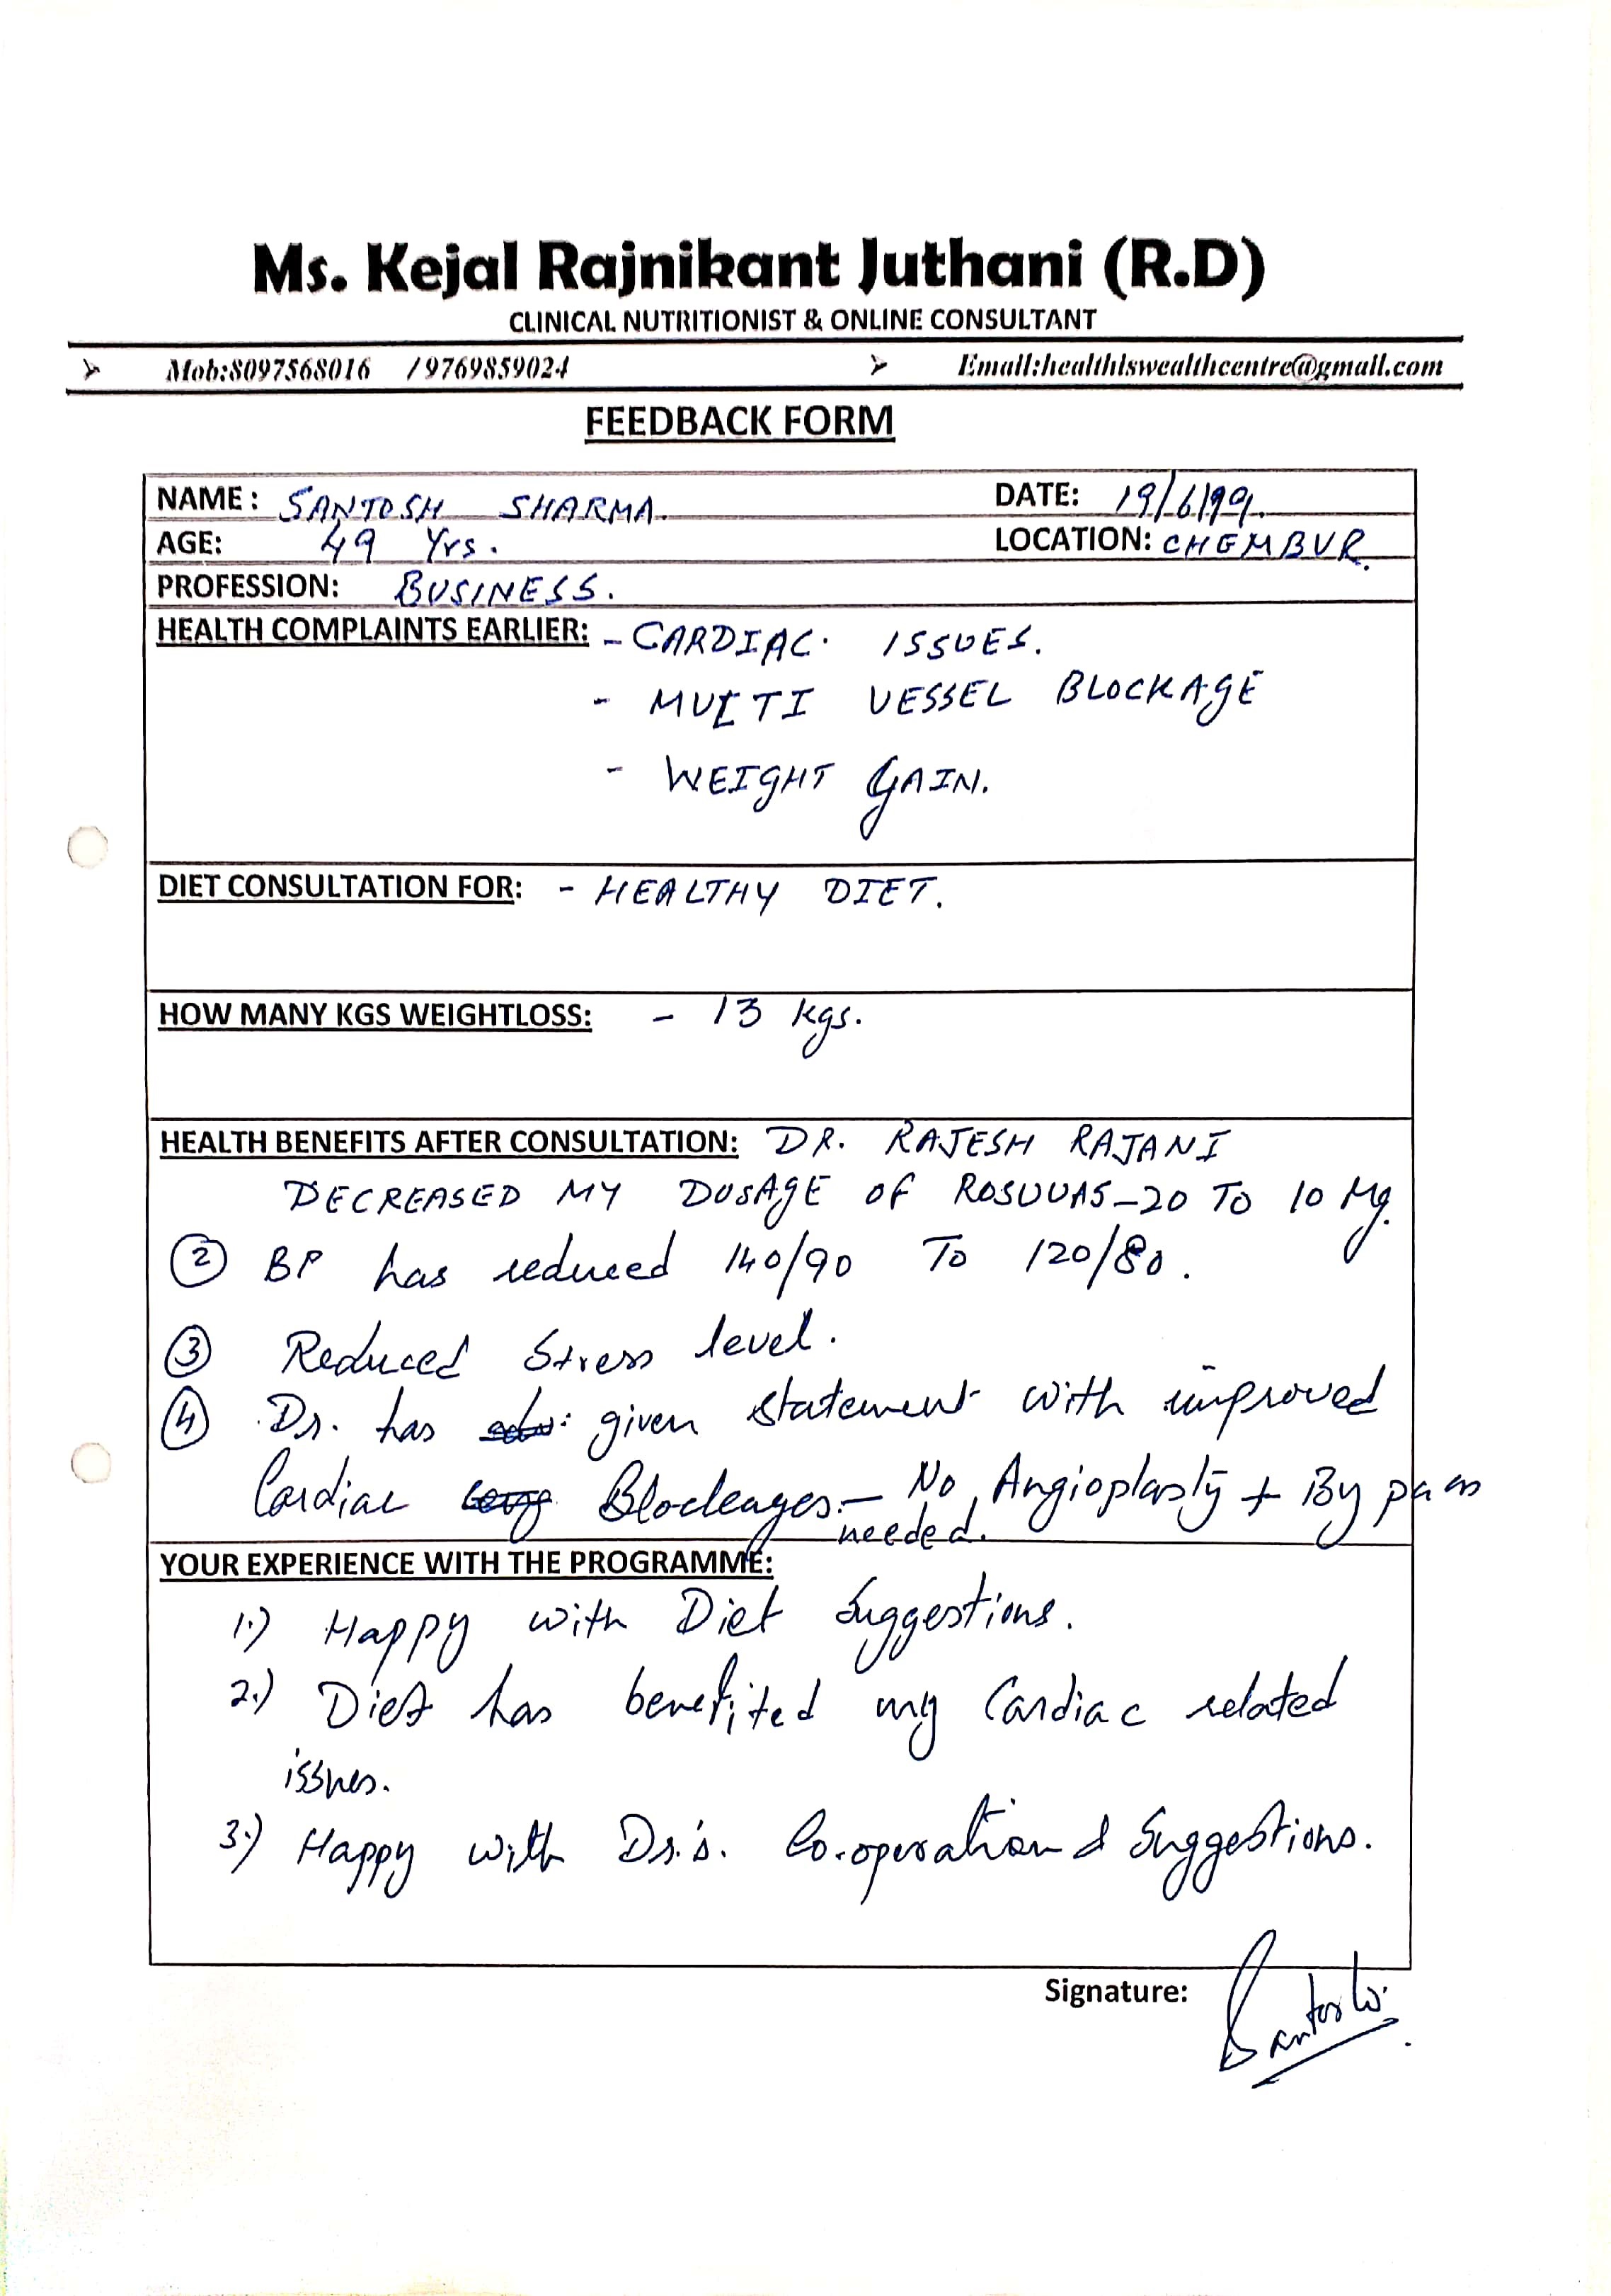 Ms. Kejal Rajnikant Juthani (R.D)
CLINICAL NUTRITIONIST & ONLINE CONSULTANT
Mob:8097568016 /9769859024 Email:healthiswealthcentre@gmail.com
FEEDBACK FORM
NAME : SANTOSH SHARMA. DATE: 19/6/19.
AGE: 49 Yrs. LOCATION: CHEMBUR.
PROFESSION: BUSINESS.
HEALTH COMPLAINTS EARLIER: - CARDIAC. ISSUES.
- MULTI VESSEL BLOCKAGE
- WEIGHT GAIN.
DIET CONSULTATION FOR: - HEALTHY DIET.
HOW MANY KGS WEIGHTLOSS: - 13 kgs.
HEALTH BENEFITS AFTER CONSULTATION: DR. RAJESH RAJANI
DECREASED MY DOSAGE OF ROSUVAS-20 TO 10 Mg.
② BP has reduced 140/90 To 120/80.
③ Reduced Stress level.
④ Dr. has given statement with improved
Cardiac Blockages.- No Angioplasty + By pass
needed.
YOUR EXPERIENCE WITH THE PROGRAMME:
1.) Happy with Diet Suggestions.
2.) Diet has benefited my Cardiac related
issues.
3.) Happy with Dr.'s. Co-operation & Suggestions.
Signature: Santosh.